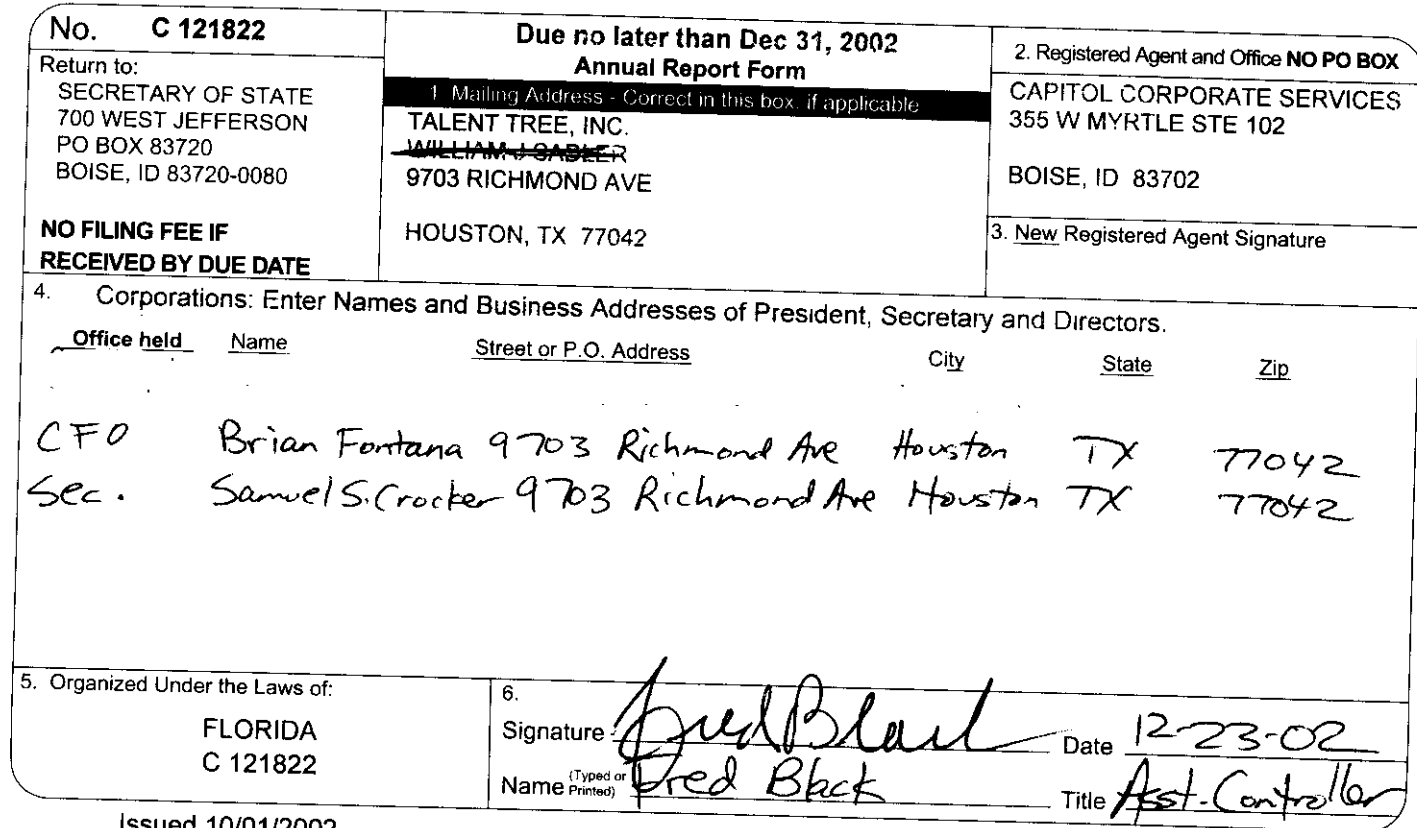 No. C 121822
Return to:
SECRETARY OF STATE
700 WEST JEFFERSON
PO BOX 83720
BOISE, ID 83720-0080
NO FILING FEE IF
RECEIVED BY DUE DATE
Due no later than Dec 31, 2002
Annual Report Form
1. Mailing Address - Correct in this box, if applicable
TALENT TREE, INC.
WILLIAM J SADLER
9703 RICHMOND AVE
HOUSTON, TX 77042
2. Registered Agent and Office NO PO BOX
CAPITOL CORPORATE SERVICES
355 W MYRTLE STE 102
BOISE, ID 83702
3. New Registered Agent Signature
4. Corporations: Enter Names and Business Addresses of President, Secretary and Directors.
Office held Name Street or P.O. Address City State Zip
CFO Brian Fontana 9703 Richmond Ave Houston TX 77042
Sec. Samuel S. Crocker 9703 Richmond Ave Houston TX 77042
5. Organized Under the Laws of:
FLORIDA
C 121822
6.
Signature Fred Black Date 12-23-02
Name (Typed or Printed) Fred Black Title Asst. Controller
Issued 10/01/2002